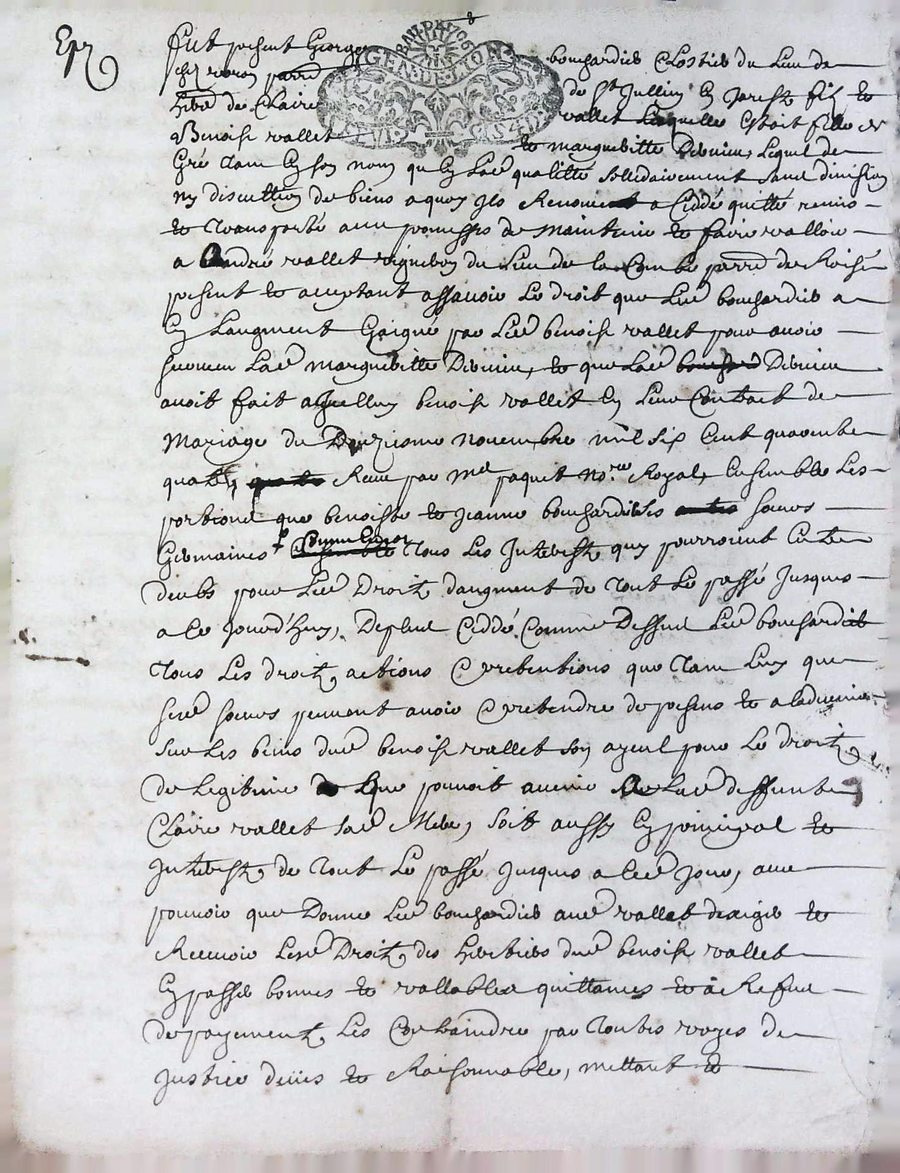 Exp
BAIL DE 1706
GEN. DE LION
fut présent George bouchardier Clostier du lieu de
chez voron parre de St Jullien En Jarest filz et
here de Claire vallet laquelle Estoit fille de
Benoist vallet et margueritte Deviricu, Lequel de
Gré tant En son nom qu En lad qualitté sollidairement sans division
ny discuttion de biens a quoy ilz Renonient a Ceddé quitté remis
et transporté avec promesses de maintenir et faire valloir
a André vallet vigneron du lieu de la Combe parre de
présent et acceptant assavoir Le droit que Led bouchardier a
En Laugment Gaigné par Led benoist vallet pour avoir
survecu Lad margueritte Deviricu, et que lad Deviricu
avoit fait aud feu benoist vallet En leur Contract de
Mariage du Douziesme novembre mil six Cent quarente
quatre, Receu par me paquet nore Royal, Ensemble Les
portions que benoiste et Jeanne bouchardier soeurs
Germaines tous Les Interestz quy pourroient Estre
deubs pour Led Droit daugment de tout Le passé Jusques
a Ce Jourd'huy, Deplus Ceddé Comme Dessus Led bouchardier
tous Les droitz, actions pretentions que tant Luy que
sesd soeurs peuvent avoir pretendre de présent et a ladvenir
sur Les biens dud benoist vallet son ayeul pour Le droit
de Legitime que pouvoit avenir a Lad deffunte
Claire vallet sad Mere, soit aussy En principal et
Interestz, de tout Le passé Jusques a Ced Jour, avec
pouvoir que Donne Led bouchardier aud vallet dexiger et
Recevoir Lesd Droitz, des heritiers dud benoist vallet
En passer bonnes et vallables quittances et a Refus
de payement, Les Contraindre par toutes voyes de
Justice deües et Raisonnable, mettant et